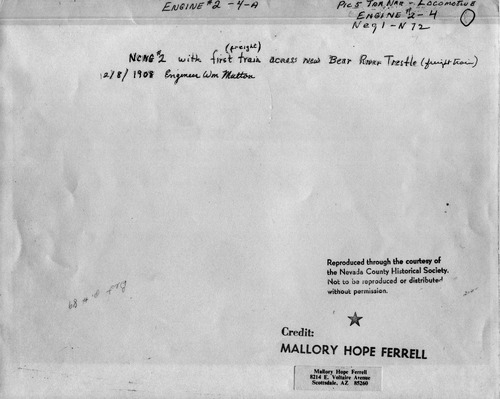 ENGINE #2 - 4-A
PIC 5 TRA, NAR - LOCOMOTIVE
ENGINE #2 - 4
Neg 1 - N72
(freight)
NCNG #2 with first train across new Bear River Trestle (freight train)
12/8/1908 Engineer Wm Mutton
Reproduced through the courtesy of
the Nevada County Historical Society.
Not to be reproduced or distributed
without permission.
Credit:
MALLORY HOPE FERRELL
Mallory Hope Ferrell
8214 E. Voltaire Avenue
Scottsdale, AZ 85260